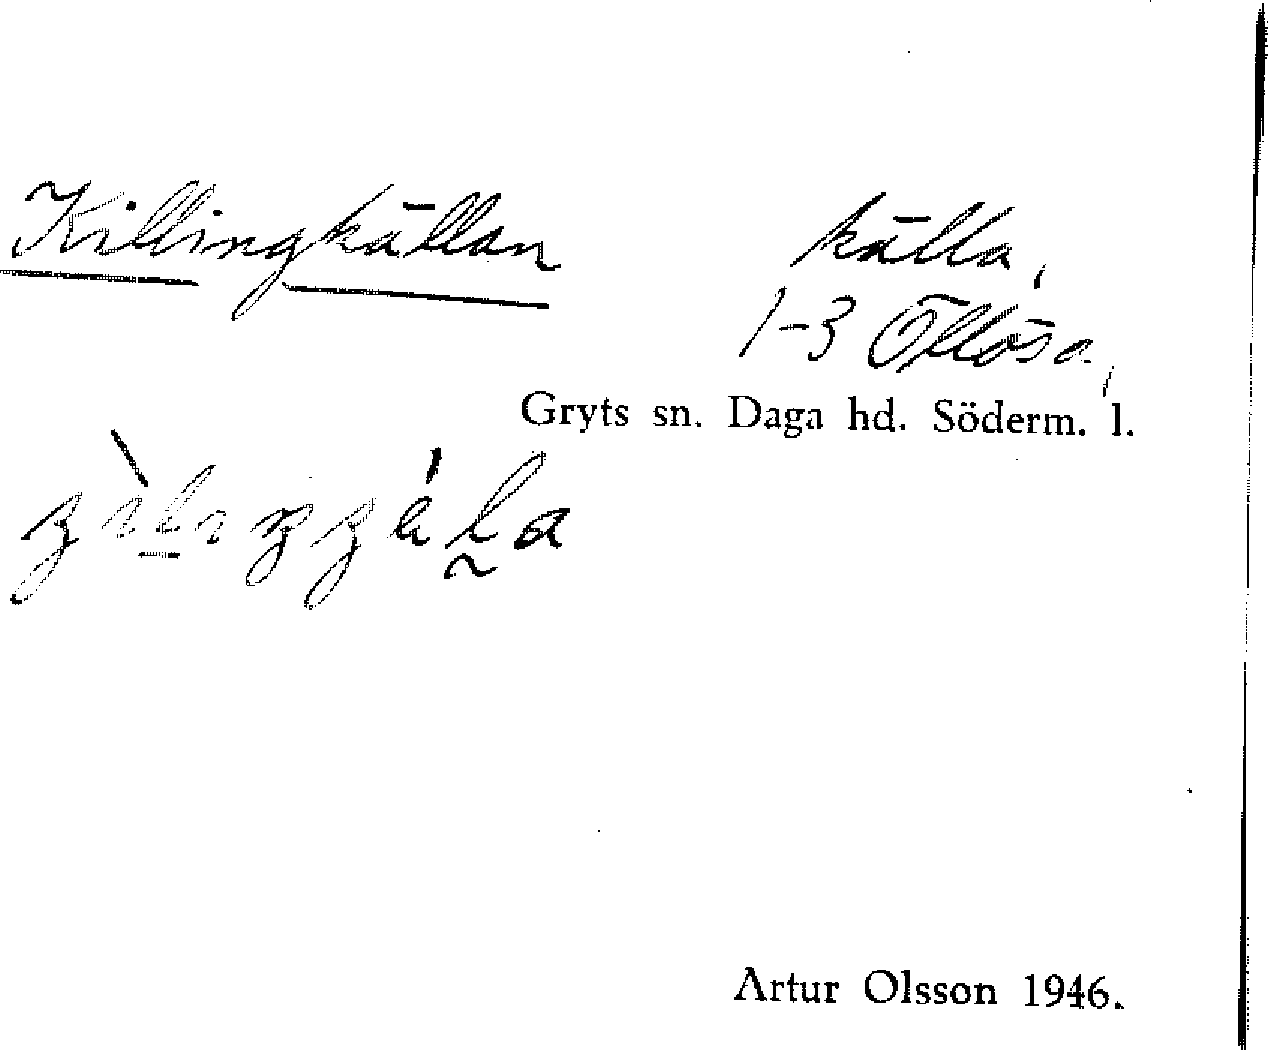 Killingkällan
källa,
1-3 Öllösa,
Gryts sn. Daga hd. Söderm. l.
Artur Olsson 1946.